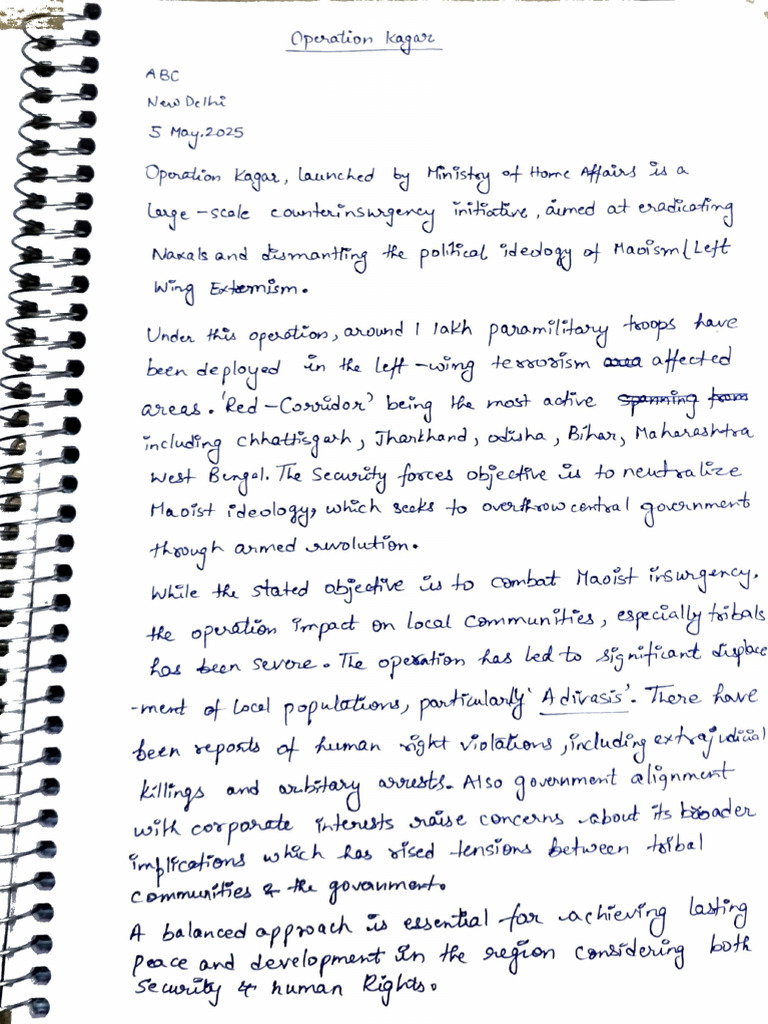 Operation Kagar
ABC
New Delhi
5 May.2025
Operation Kagar, launched by Ministry of Home Affairs is a
large-scale counterinsurgency initiative, aimed at eradicating
Naxals and dismantling the political ideology of Maoism/Left
Wing Extremism.
Under this operation, around 1 lakh paramilitary troops have
been deployed in the left-wing terrorism area affected
areas. 'Red-Corridor' being the most active spanning from
including chhattisgarh, Jharkhand, odisha, Bihar, Maharashtra
West Bengal. The Security forces objective is to neutralize
Maoist ideology, which seeks to overthrow central government
through armed revolution.
While the stated objective is to combat Maoist insurgency.
the operation impact on local communities, especially tribals
has been severe. The operation has led to significant displace
-ment of local populations, particularly 'Adivasis'. There have
been reports of human right violations, including extrajudicial
killings and arbitary arrests. Also government alignment
with corporate interests raise concerns about its broader
implications which has rised tensions between tribal
communities & the government.
A balanced approach is essential for achieving lasting
peace and development in the region considering both
Security & human Rights.